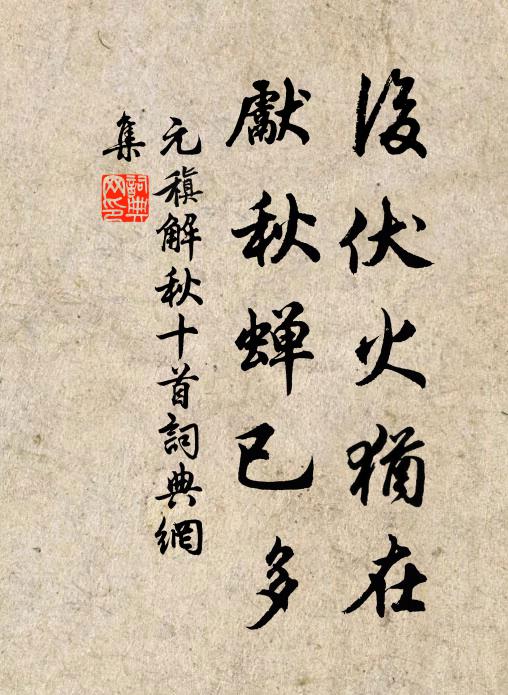 後伏火猶在
獻秋蟬已多
元稹解秋十首詞典網
集
詞典网印